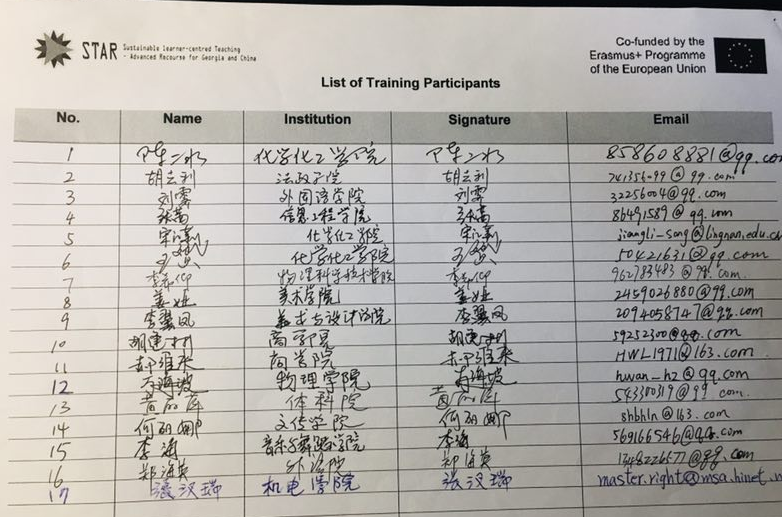 STAR Sustainable Learner-centred Teaching
- Advanced Recourse for Georgia and China
Co-funded by the
Erasmus+ Programme
of the European Union
List of Training Participants
No. Name Institution Signature Email
1 陈二水 化学化工学院 陈二水 858608881@qq.com
2 胡云利 法政学院 胡云利 741356-99@qq.com
3 刘雾 外国语学院 刘雾 32256004@qq.com
4 信息工程学院 86491589@qq.com
5 化学化工学院 jiangli-song@lingnan.edu.c
6 化学化工学院 50421631@qq.com
7 李希仰 物理科学技术学院 李希仰 962783483@qq.com
8 美术学院 2459026880@qq.com
9 李翼凤 美术与设计学院 李翼凤 2094058747@qq.com
10 商学院 59252300@qq.com
11 商学院 HWL1971@163.com
12 物理学院 hwan_hz@qq.com
13 体科院 543300319@qq.com
14 何丽娜 文传学院 何丽娜 shbhln@163.com
15 李海 音乐与舞蹈学院 李海 569166546@qq.com
16 郑海英 外语院 郑海英 1348226577@qq.com
17 张汉瑞 机电学院 张汉瑞 master.right@msa.hinet.n